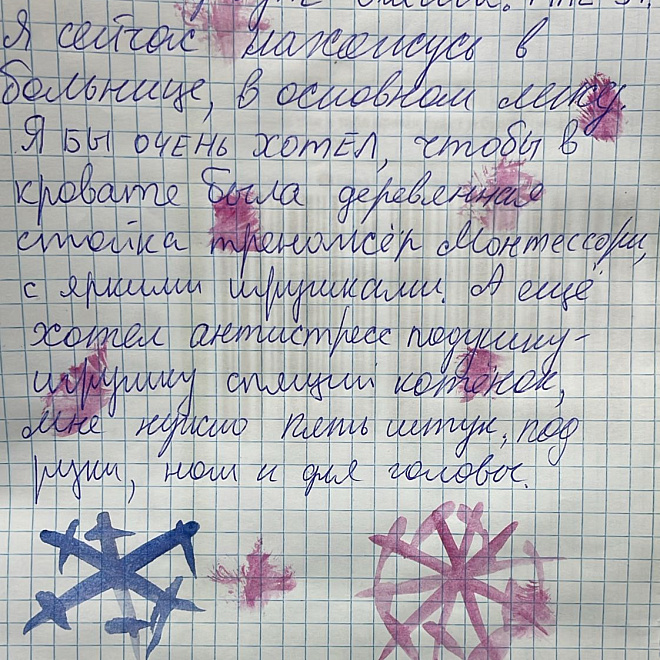 Я сейчас нахожусь в
больнице, в основном лежу.
Я бы очень хотел, чтобы в
кровате была деревянная
стойка тренажёр Монтессори,
с яркими игрушками. А ещё
хотел антистресс подушку-
игрушку спящий котёнок,
мне нужно пять штук, под
руки, ноги и для головы.